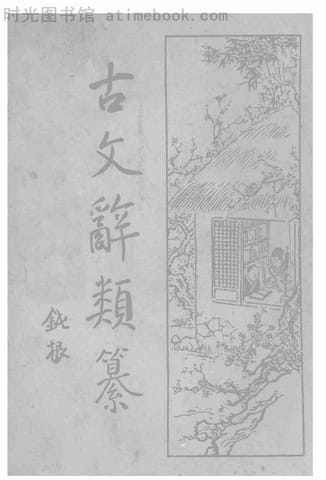 时光图书馆 atimebook.com
古文辭類纂
鈍根